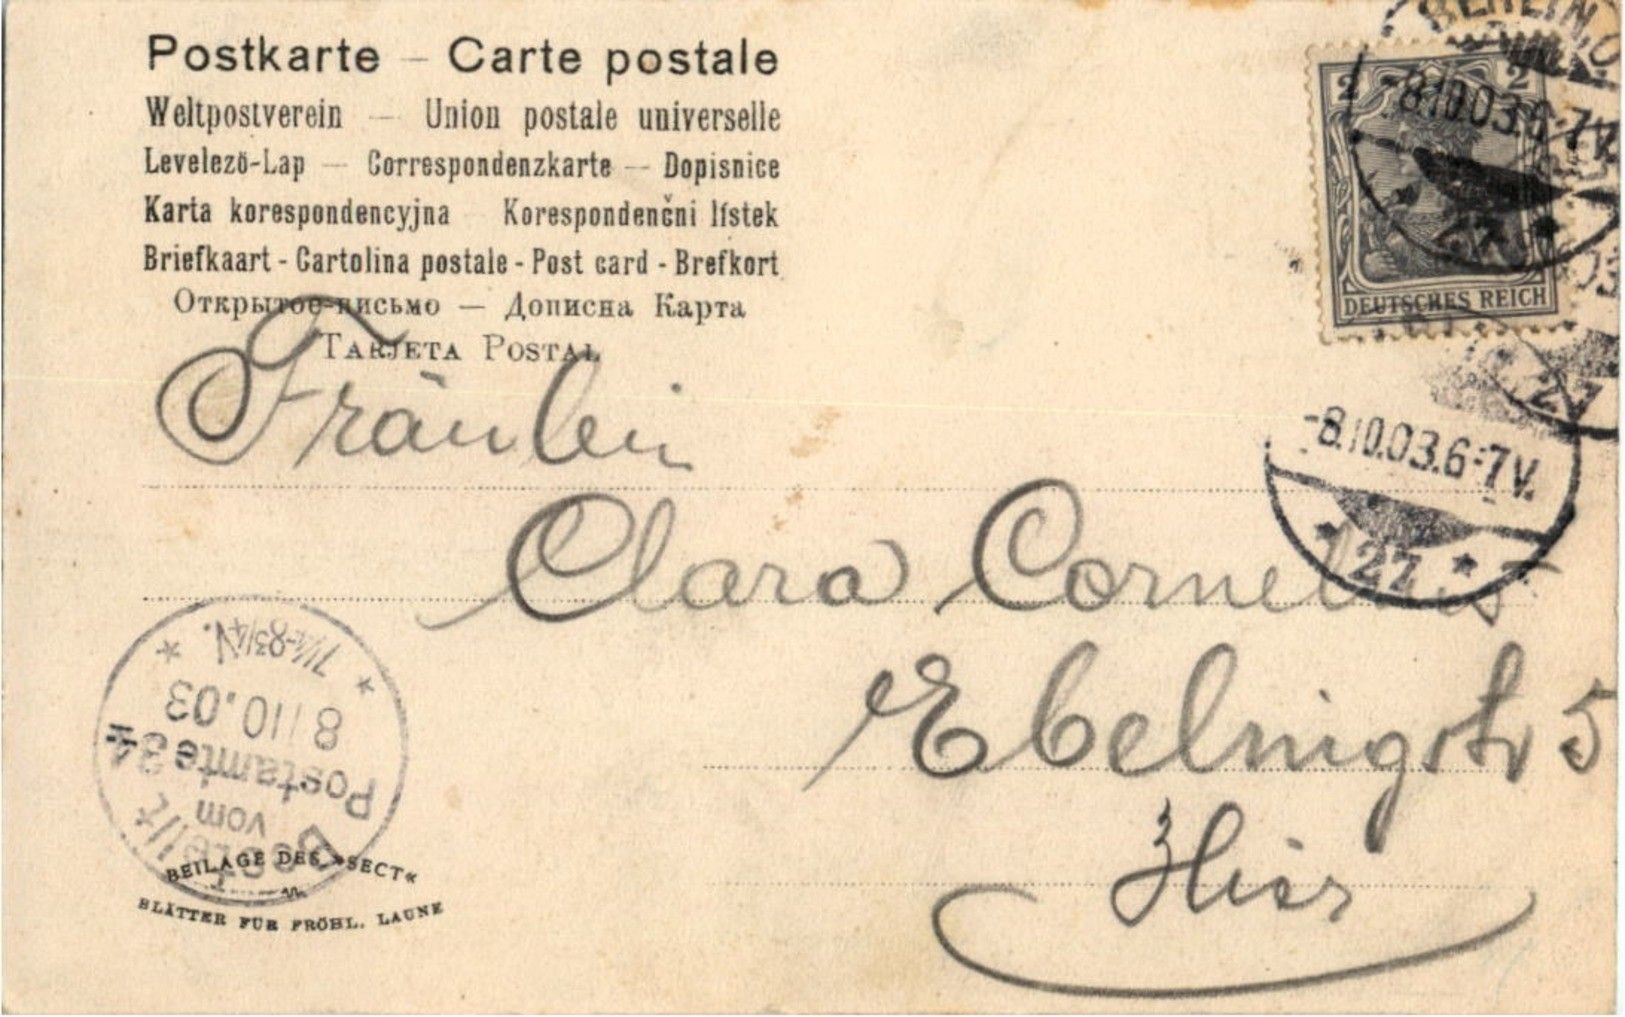 Postkarte – Carte postale
Weltpostverein — Union postale universelle
Levelező-Lap — Correspondenzkarte — Dopisnice
Karta korespondencyjna Korespondenčni lístek
Briefkaart - Cartolina postale - Post card - Brefkort
Открытое письмо — Дописна Карта
TARJETA POSTAL
2 2
DEUTSCHES REICH
BERLIN, O
-8.10.03.6-7V.
27
Fräulein
-8.10.03.6-7V.
* 27 *
Clara Cornelius
5
Hier
Bestellt
vom
Postamte 34
8/10.03
7½-8¾V.
BEILAGE DES »SECT«
BLÄTTER FÜR FRÖHL. LAUNE